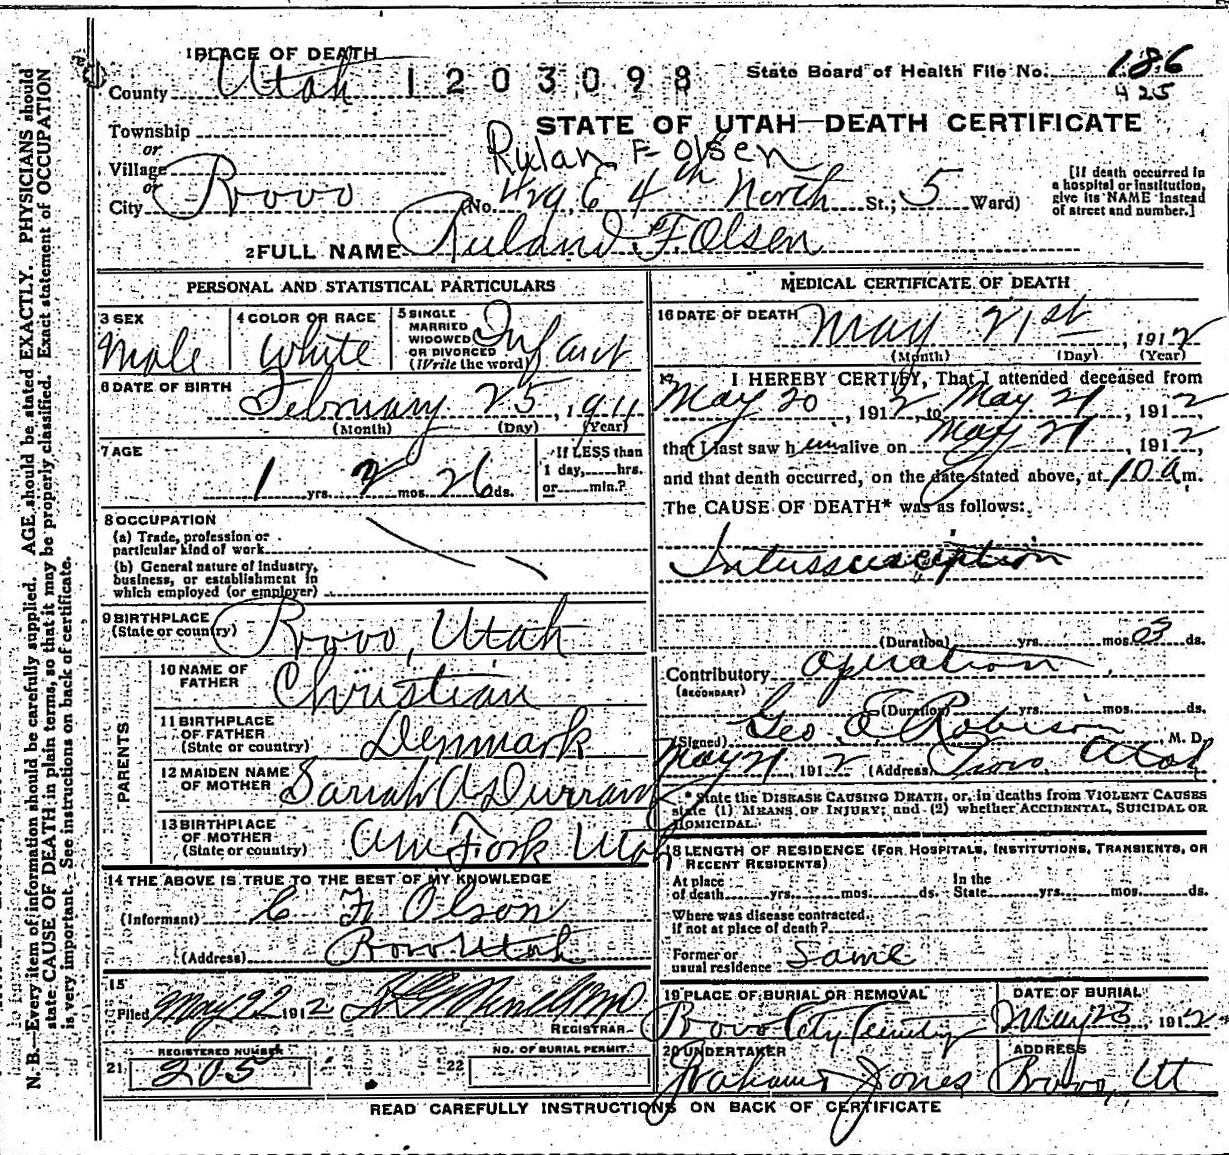 1 PLACE OF DEATH
County Utah 1203098 State Board of Health File No. 186
425
Township
or
Village
or
City Provo
STATE OF UTAH—DEATH CERTIFICATE
Rulan F Olsen
(No. 479 E 4th North St.; 5 Ward)
[If death occurred in
a hospital or institution,
give its NAME instead
of street and number.]
2 FULL NAME Ruland F. Olsen
PERSONAL AND STATISTICAL PARTICULARS
3 SEX
Male
4 COLOR OR RACE
White
5 SINGLE
MARRIED
WIDOWED
OR DIVORCED
(Write the word)
Infant
6 DATE OF BIRTH
February 25, 1911
(Month) (Day) (Year)
7 AGE
1 yrs. 2 mos. 26 ds.
If LESS than
1 day, hrs.
or min.?
8 OCCUPATION
(a) Trade, profession or
particular kind of work
(b) General nature of industry,
business, or establishment in
which employed (or employer)
9 BIRTHPLACE
(State or country)
Provo, Utah
PARENTS
10 NAME OF
FATHER
Christian
11 BIRTHPLACE
OF FATHER
(State or country)
Denmark
12 MAIDEN NAME
OF MOTHER
Sariah A Durrant
13 BIRTHPLACE
OF MOTHER
(State or country)
Am Fork Utah
14 THE ABOVE IS TRUE TO THE BEST OF MY KNOWLEDGE
(Informant) C F Olson
(Address) Provo Utah
15
Filed May 22 1912
REGISTRAR
21 REGISTERED NUMBER
205
22 NO. OF BURIAL PERMIT
MEDICAL CERTIFICATE OF DEATH
16 DATE OF DEATH
May 21st, 1912
(Month) (Day) (Year)
17 I HEREBY CERTIFY, That I attended deceased from
May 20, 1912, to May 21, 1912
that I last saw him alive on May 21, 1912,
and that death occurred, on the date stated above, at 10 a m.
The CAUSE OF DEATH* was as follows:
Intussusception
(Duration) yrs. mos. 03 ds.
Contributory operation
(SECONDARY)
(Duration) yrs. mos. ds.
(Signed) Geo E Robison, M. D.
May 21, 1912 (Address) Provo, Utah
* State the DISEASE CAUSING DEATH, or, in deaths from VIOLENT CAUSES
state (1) MEANS OF INJURY; and (2) whether ACCIDENTAL, SUICIDAL OR
HOMICIDAL.
18 LENGTH OF RESIDENCE (FOR HOSPITALS, INSTITUTIONS, TRANSIENTS, OR
RECENT RESIDENTS)
At place
of death yrs. mos. ds.
In the
State yrs. mos. ds.
Where was disease contracted
if not at place of death?
Former or
usual residence Same
19 PLACE OF BURIAL OR REMOVAL
Provo City Cemetery
DATE OF BURIAL
May 23, 1912
20 UNDERTAKER
Graham & Jones
ADDRESS
Provo, Ut
READ CAREFULLY INSTRUCTIONS ON BACK OF CERTIFICATE
N. B.—Every item of information should be carefully supplied. AGE should be stated EXACTLY. PHYSICIANS should
state CAUSE OF DEATH in plain terms, so that it may be properly classified. Exact statement of OCCUPATION
is very important. See instructions on back of certificate.